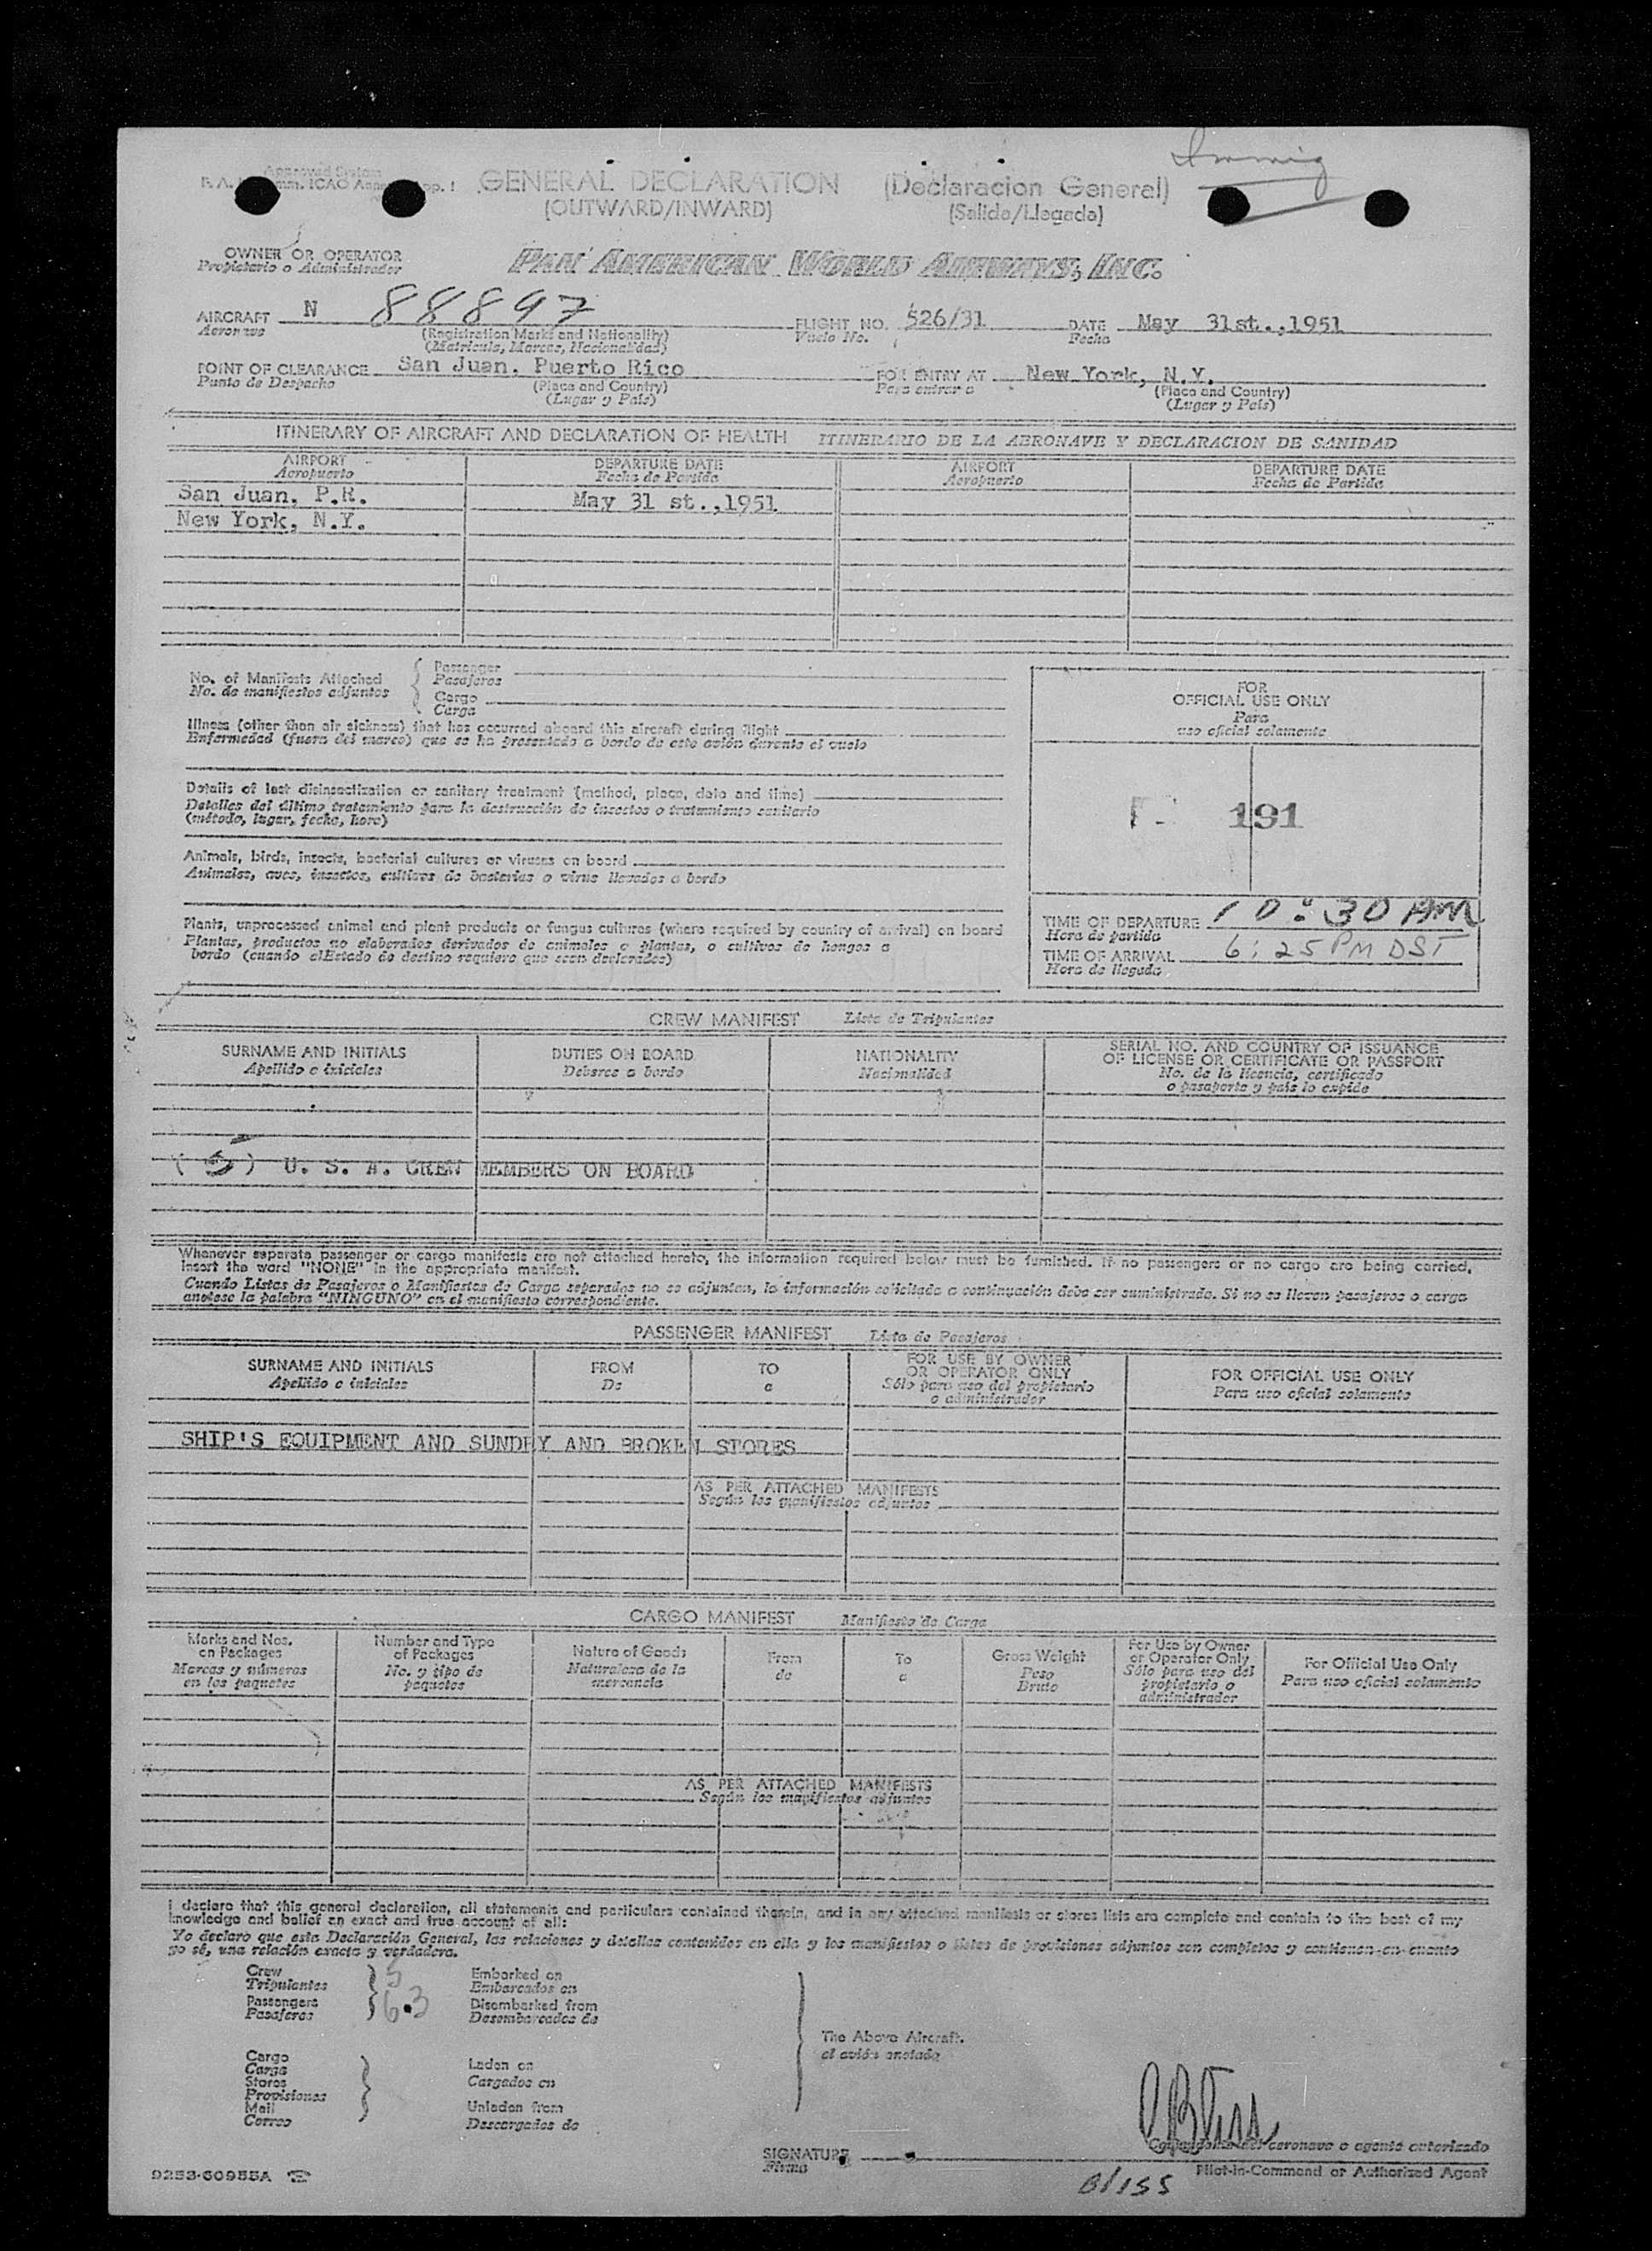 Immig
Approved System
GENERAL DECLARATION (Declaracion General)
(OUTWARD/INWARD) (Salida/Llegada)
OWNER OR OPERATOR PAN AMERICAN WORLD AIRWAYS, INC.
Propietario o Administrador
AIRCRAFT N 88897 FLIGHT NO. 526/31 DATE May 31st.,1951
Aeronave (Registration Marks and Nationality) Vuelo No. Fecha
(Matricula, Marcas, Nacionalidad)
POINT OF CLEARANCE San Juan, Puerto Rico FOR ENTRY AT New York, N.Y.
Punto de Despacho (Place and Country) Para entrar a (Place and Country)
(Lugar y País) (Lugar y País)
ITINERARY OF AIRCRAFT AND DECLARATION OF HEALTH ITINERARIO DE LA AERONAVE Y DECLARACION DE SANIDAD
AIRPORT DEPARTURE DATE AIRPORT DEPARTURE DATE
Aeropuerto Fecha de Partida Aeropuerto Fecha de Partida
San Juan, P.R. May 31 st.,1951
New York, N.Y.
No. of Manifests Attached Passenger
No. de manifiestos adjuntos Pasajeros
Cargo
Carga
Illness (other than air sickness) that has occurred aboard this aircraft during flight
Enfermedad (fuera del mareo) que se ha presentado a bordo de este avión durante el vuelo
Details of last disinsectization or sanitary treatment (method, place, date and time)
Detalles del último tratamiento para la destrucción de insectos o tratamiento sanitario
(método, lugar, fecha, hora)
Animals, birds, insects, bacterial cultures or viruses on board
Animales, aves, insectos, cultivos de bacterias o virus llevados a bordo
Plants, unprocessed animal and plant products or fungus cultures (where required by country of arrival) on board
Plantas, productos no elaborados derivados de animales o plantas, o cultivos de hongos a
bordo (cuando el Estado de destino requiere que sean declarados)
FOR
OFFICIAL USE ONLY
Para
uso oficial solamente
191
TIME OF DEPARTURE 10:30 AM
Hora de partida
TIME OF ARRIVAL 6:25 PM DST
Hora de llegada
CREW MANIFEST Lista de Tripulantes
SURNAME AND INITIALS DUTIES ON BOARD NATIONALITY SERIAL NO. AND COUNTRY OF ISSUANCE
OF LICENSE OR CERTIFICATE OR PASSPORT
Apellido e iniciales Deberes a bordo Nacionalidad No. de la licencia, certificado
o pasaporte y país lo expide
(5) U. S. A. CREW MEMBERS ON BOARD
Whenever separate passenger or cargo manifests are not attached hereto, the information required below must be furnished. If no passengers or no cargo are being carried,
insert the word "NONE" in the appropriate manifest.
Cuando Listas de Pasajeros o Manifiestos de Carga separados no se adjuntan, la información solicitada a continuación debe ser suministrada. Si no se llevan pasajeros o carga
anotese la palabra "NINGUNO" en el manifiesto correspondiente.
PASSENGER MANIFEST Lista de Pasajeros
SURNAME AND INITIALS FROM TO FOR USE BY OWNER
OR OPERATOR ONLY FOR OFFICIAL USE ONLY
Apellido e iniciales De a Sólo para uso del propietario
o administrador Para uso oficial solamente
SHIP'S EQUIPMENT AND SUNDRY AND BROKEN STORES
AS PER ATTACHED MANIFESTS
Según los manifiestos adjuntos
CARGO MANIFEST Manifiesto de Carga
Marks and Nos.
on Packages
Marcas y números
en los paquetes
Number and Type
of Packages
No. y tipo de
paquetes
Nature of Goods
Naturaleza de la
mercancía
From
de
To
a
Gross Weight
Peso
Bruto
For Use by Owner
or Operator Only
Sólo para uso del
propietario o
administrador
For Official Use Only
Para uso oficial solamente
AS PER ATTACHED MANIFESTS
Según los manifiestos adjuntos
I declare that this general declaration, all statements and particulars contained therein, and in any attached manifests or stores lists are complete and contain to the best of my
knowledge and belief an exact and true account of all:
Yo declaro que esta Declaración General, las relaciones y detalles contenidos en ella y los manifiestos o listas de provisiones adjuntos son completos y contienen en cuanto
yo sé, una relación exacta y verdadera.
Crew 5 Embarked on
Tripulantes Embarcados en
Passengers 63 Disembarked from
Pasajeros Desembarcados de
The Above Aircraft.
el avión anotado
Cargo
Carga Laden on
Stores Cargados en
Provisiones
Mail Unladen from
Correo Descargados de
C Bliss
SIGNATURE Comandante de aeronave o agente autorizado
Firma Pilot-in-Command or Authorized Agent
Bliss
9253-60955A